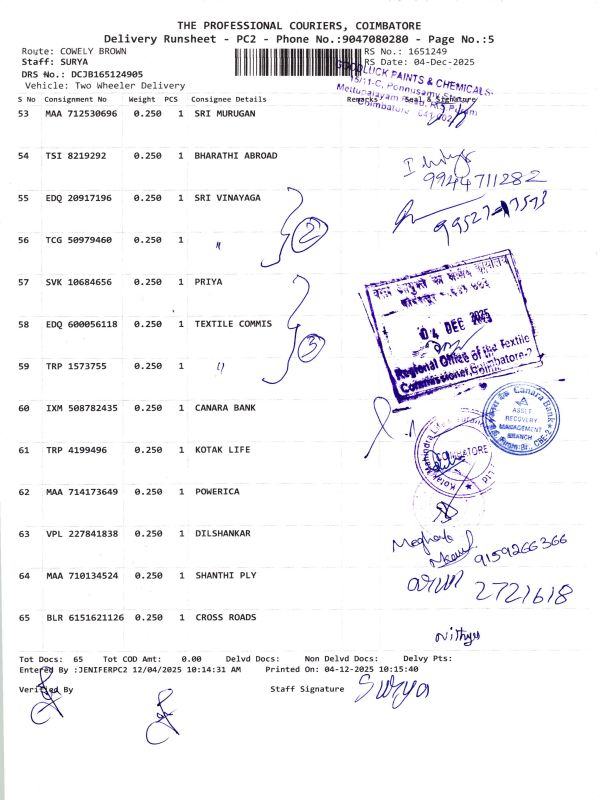 THE PROFESSIONAL COURIERS, COIMBATORE
Delivery Runsheet - PC2 - Phone No.:9047080280 - Page No.:5
Route: COWELY BROWN
RS No.: 1651249
Staff: SURYA
RS Date: 04-Dec-2025
DRS No.: DCJB165124905
Vehicle: Two Wheeler Delivery
GOODLUCK PAINTS & CHEMICALS
15/11-C, Ponnusamy
Mettupalayam Road, R.S Puram
Coimbatore - 641 002
S No Consignment No Weight PCS Consignee Details Remarks Seal & Signature
53 MAA 712530696 0.250 1 SRI MURUGAN
54 TSI 8219292 0.250 1 BHARATHI ABROAD
9944711282
55 EDQ 20917196 0.250 1 SRI VINAYAGA
2
56 TCG 50979460 0.250 1 "
57 SVK 10684656 0.250 1 PRIYA
58 EDQ 600056118 0.250 1 TEXTILE COMMIS
3
04 DEC 2025
Regional Office of the Textile
Commissioner, Coimbatore-2
59 TRP 1573755 0.250 1 "
60 IXM 508782435 0.250 1 CANARA BANK
Canara Bank
ASSET
RECOVERY
MANAGEMENT
BRANCH
CBE-2
61 TRP 4199496 0.250 1 KOTAK LIFE
Kotak Mahindra Life
COIMBATORE
62 MAA 714173649 0.250 1 POWERICA
63 VPL 227841838 0.250 1 DILSHANKAR
9159266366
64 MAA 710134524 0.250 1 SHANTHI PLY
2721618
65 BLR 6151621126 0.250 1 CROSS ROADS
Nithya
Tot Docs: 65 Tot COD Amt: 0.00 Delvd Docs: Non Delvd Docs: Delvy Pts:
Entered By :JENIFERPC2 12/04/2025 10:14:31 AM Printed On: 04-12-2025 10:15:40
Verified By
Staff Signature Surya